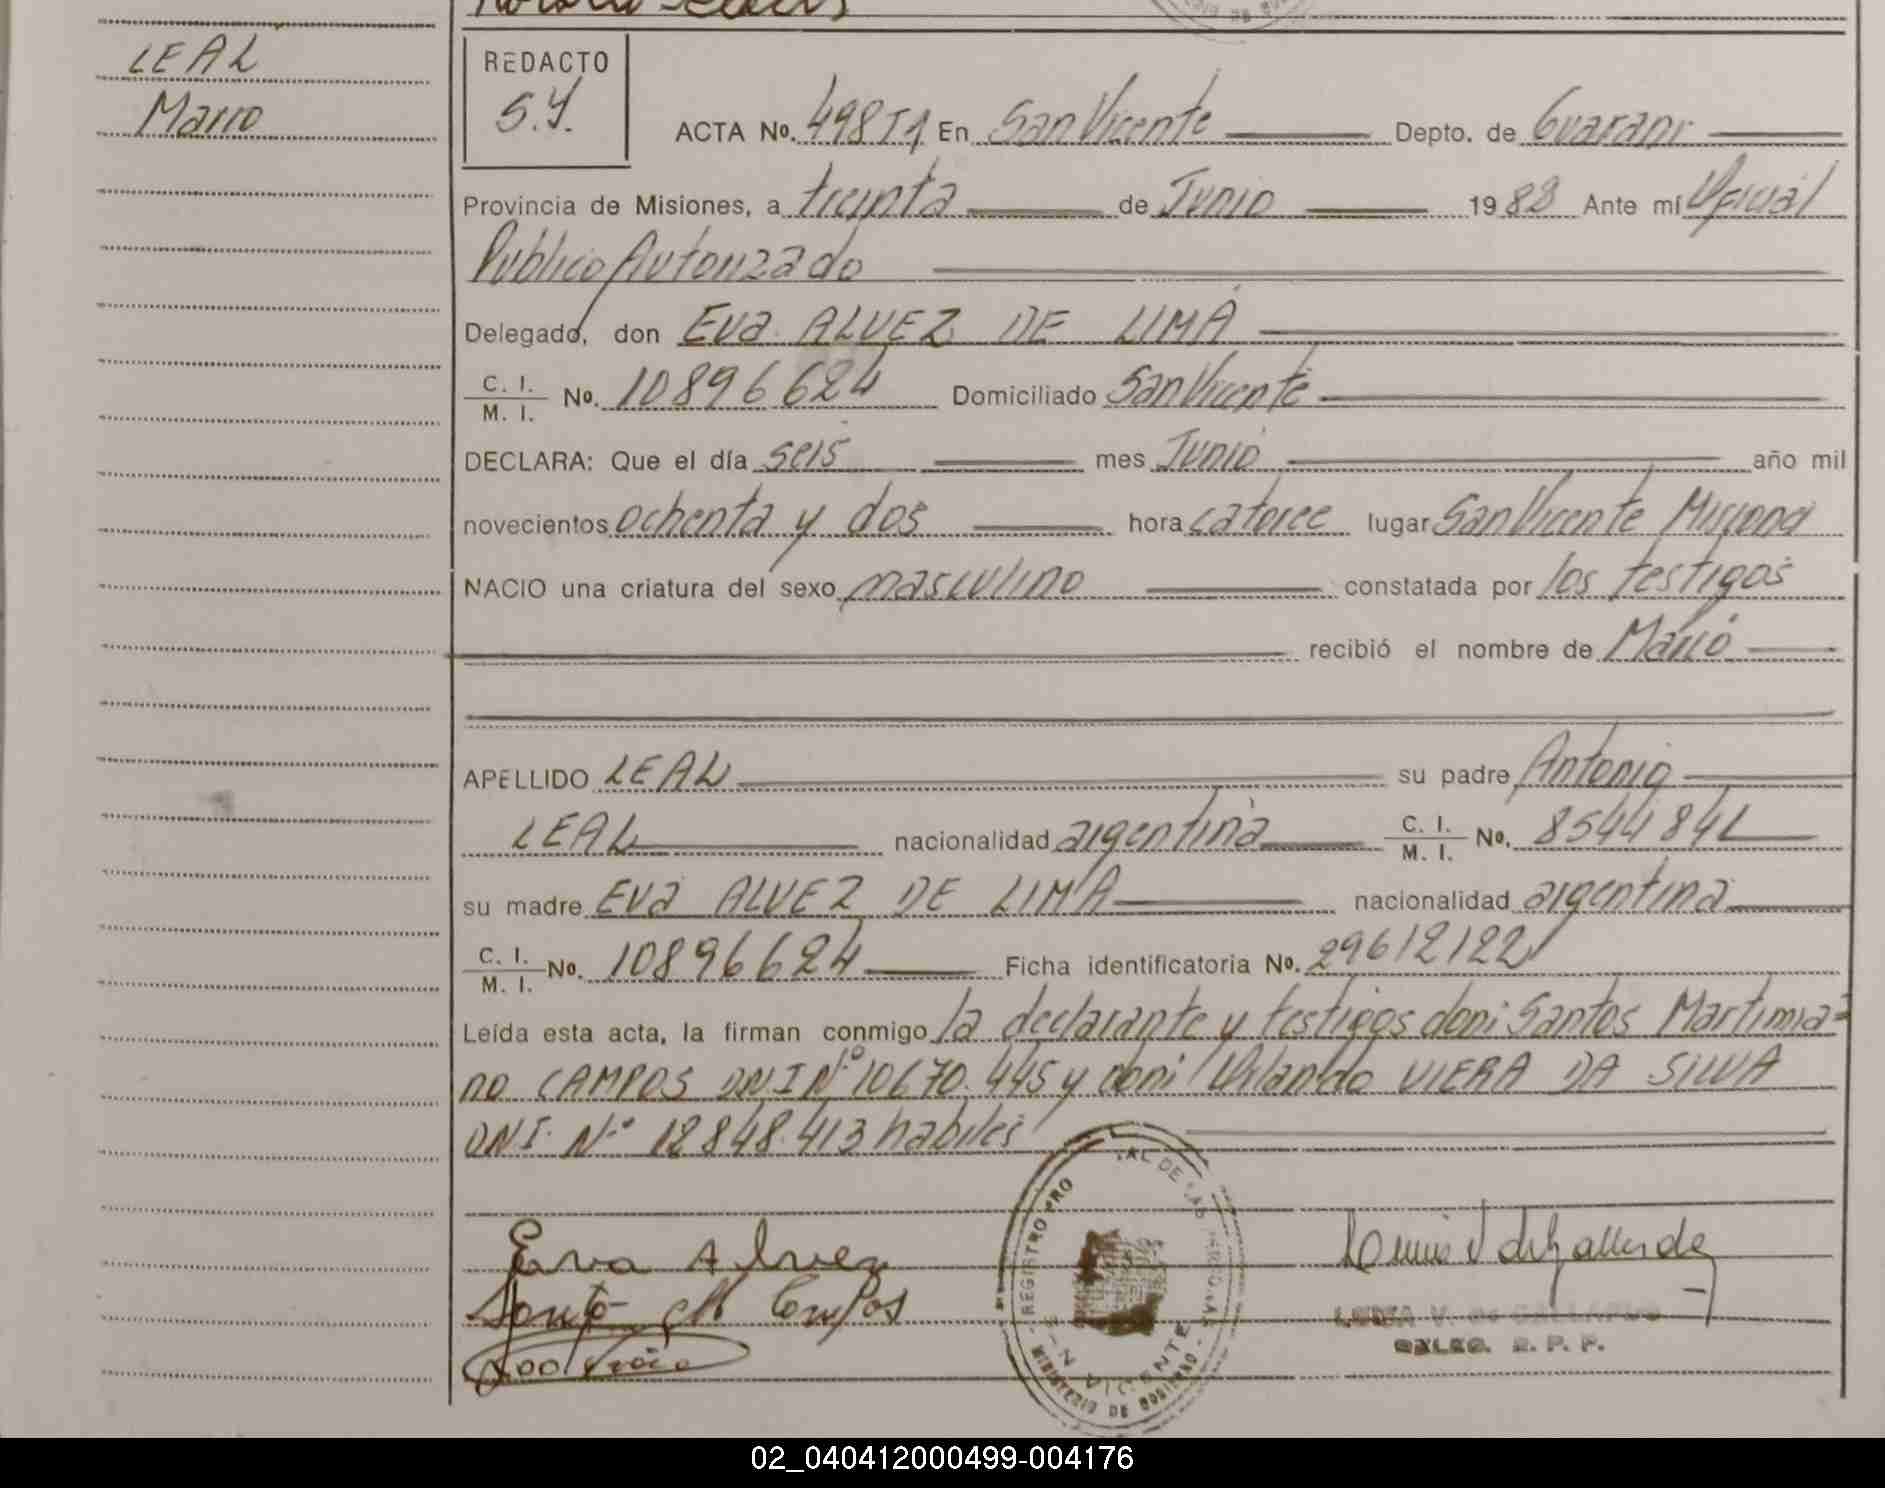 LEAL
Mario
REDACTO
S.Y.
ACTA No. 498T1 En San Vicente Depto. de Guarani
Provincia de Misiones, a treynta de Junio 1988 Ante mí Oficial
Publico Autorizado
Delegado, don Eva ALVEZ DE LIMA
C. I.
M. I. No. 10896624 Domiciliado San Vicente
DECLARA: Que el día seis mes Junio año mil
novecientos ochenta y dos hora catorce lugar San Vicente Misiones
NACIO una criatura del sexo masculino constatada por los testigos
recibió el nombre de Mario
APELLIDO LEAL su padre Antonio
LEAL nacionalidad argentina C. I.
M. I. No. 8544841
su madre Eva ALVEZ DE LIMA nacionalidad argentina
C. I.
M. I. No. 10896624 Ficha identificatoria No. 29612122
Leída esta acta, la firman conmigo la declarante y testigos don: Santos Martimia=
no CAMPOS DNI Nº 10670.445 y don: Orlando VIERA DA SILVA
DNI. Nº 12848.413 habiles
Eva Alvez
REGISTRO PRO
MINISTERIO DE GOBIERNO
DELEG. R. P. P.
02_040412000499-004176